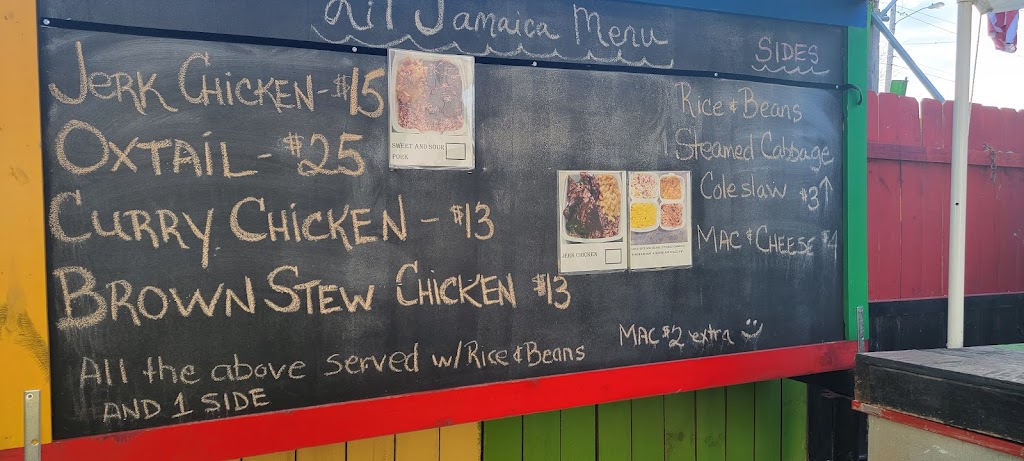 Lil Jamaica Menu
JERK CHICKEN - $15
OXTAIL - $25
CURRY CHICKEN - $13
BROWN STEW CHICKEN $13
All the above served w/Rice & Beans
AND 1 SIDE
SWEET AND SOUR
PORK
JERK CHICKEN
SIDES
Rice & Beans
Steamed Cabbage
Coleslaw $3↑
MAC & CHEESE $4
MAC $2 extra